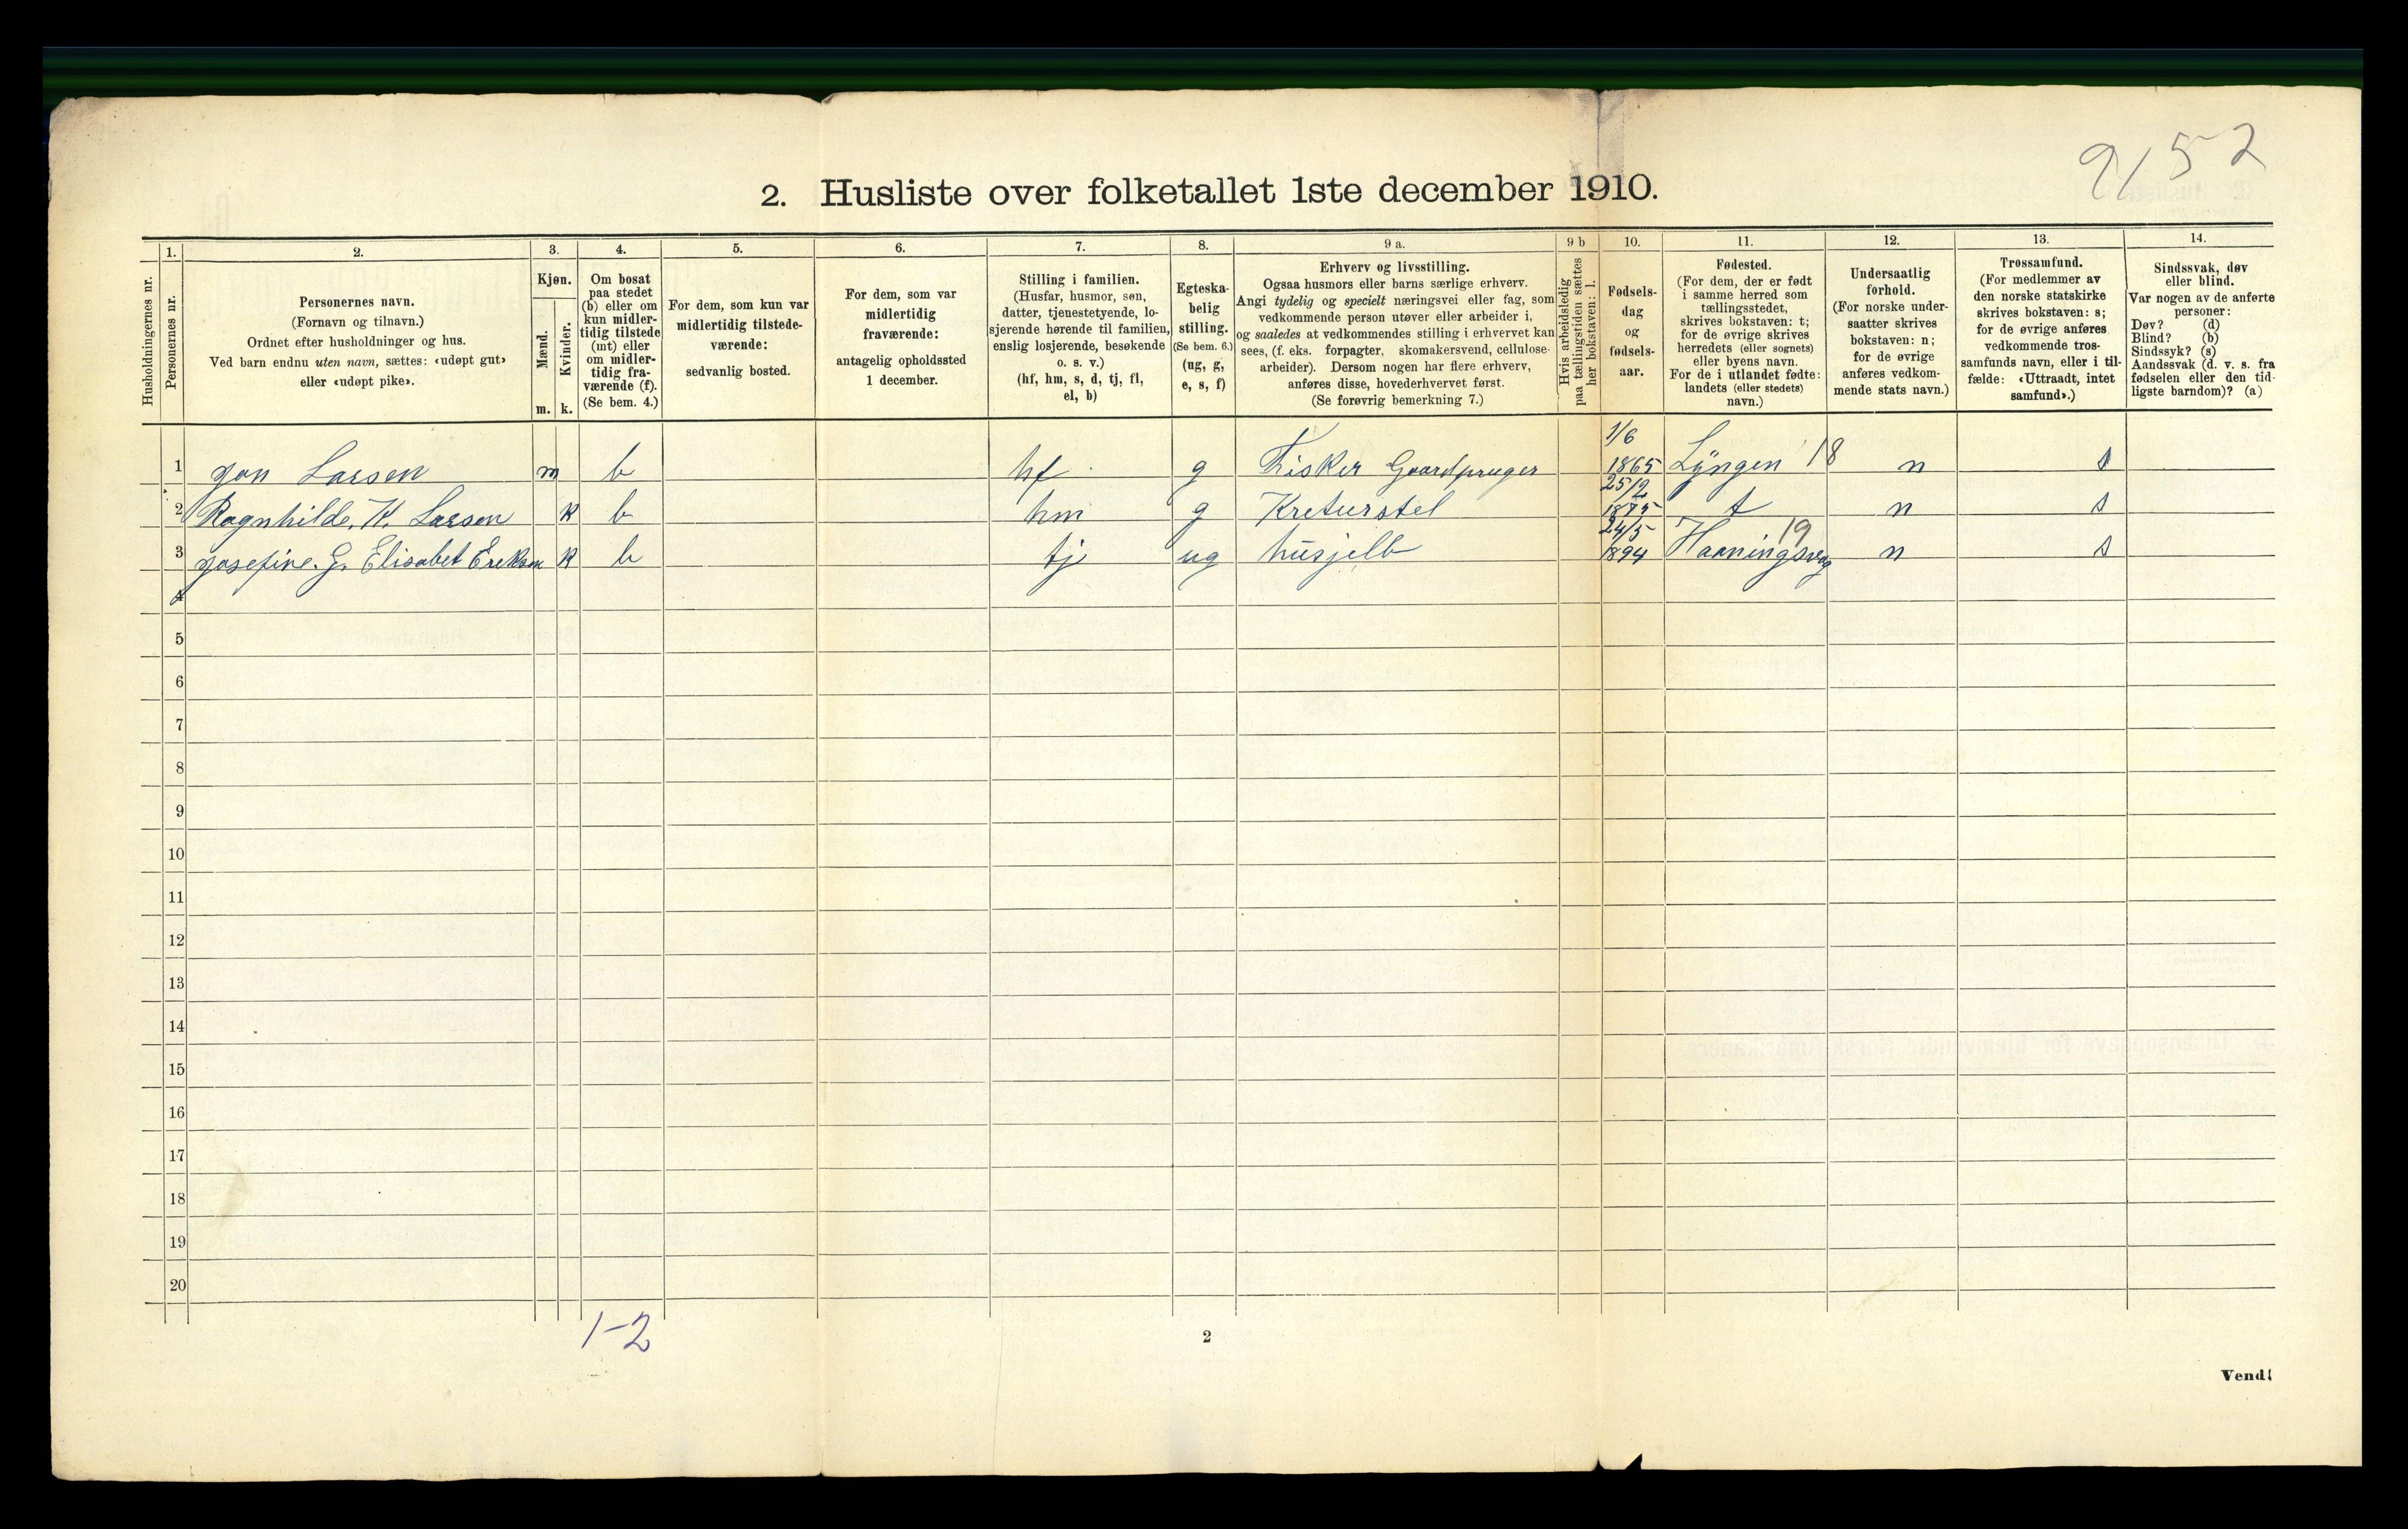 9/52
2. Husliste over folketallet 1ste december 1910.
Husholdningernes nr.
1.
Personernes nr.
2.
Personernes navn.
(Fornavn og tilnavn.)
Ordnet efter husholdninger og hus.
Ved barn endnu uten navn, sættes: «udøpt gut»
eller «udøpt pike».
3.
Kjøn.
Mænd.
m.
Kvinder.
k.
4.
Om bosat
paa stedet
(b) eller om
kun midler-
tidig tilstede
(mt) eller
om midler-
tidig fra-
værende (f).
(Se bem. 4.)
5.
For dem, som kun var
midlertidig tilstede-
værende:
sedvanlig bosted.
6.
For dem, som var
midlertidig
fraværende:
antagelig opholdssted
1 december.
7.
Stilling i familien.
(Husfar, husmor, søn,
datter, tjenestetyende, lo-
sjerende hørende til familien,
enslig losjerende, besøkende
o. s. v.)
(hf, hm, s, d, tj, fl,
el, b)
8.
Egteska-
belig
stilling.
(Se bem. 6.)
(ug, g,
e, s, f)
9 a.
Erhverv og livsstilling.
Ogsaa husmors eller barns særlige erhverv.
Angi tydelig og specielt næringsvei eller fag, som
vedkommende person utøver eller arbeider i,
og saaledes at vedkommendes stilling i erhvervet kan
sees, (f. eks. forpagter, skomakersvend, cellulose-
arbeider). Dersom nogen har flere erhverv,
anføres disse, hovederhvervet først.
(Se forøvrig bemerkning 7.)
9 b
Hvis arbeidsledig
paa tællingstiden sættes
her bokstaven: l.
10.
Fødsels-
dag
og
fødsels-
aar.
11.
Fødested.
(For dem, der er født
i samme herred som
tællingsstedet,
skrives bokstaven: t;
for de øvrige skrives
herredets (eller sognets)
eller byens navn.
For de i utlandet fødte:
landets (eller stedets)
navn.)
12.
Undersaatlig
forhold.
(For norske under-
saatter skrives
bokstaven: n;
for de øvrige
anføres vedkom-
mende stats navn.)
13.
Trossamfund.
(For medlemmer av
den norske statskirke
skrives bokstaven: s;
for de øvrige anføres
vedkommende tros-
samfunds navn, eller i til-
fælde: «Uttraadt, intet
samfund».)
14.
Sindssvak, døv
eller blind.
Var nogen av de anførte
personer:
Døv? (d)
Blind? (b)
Sindssyk? (s)
Aandssvak (d. v. s. fra
fødselen eller den tid-
ligste barndom)? (a)
1 Jon Larsen m b hf g Fisker Gaardbruger 1/6 1865 Lyngen 18 n s
2 Ragnhilde. K. Larsen k b hm g Kreturstel 25/2 1875 t n s
3 Josefine. G. Elisabet Ereksen k b tj ug husjelb 24/5 1894 Haaningsvog 19 n s
4
5
6
7
8
9
10
11
12
13
14
15
16
17
18
19
20
1-2
2
Vend!